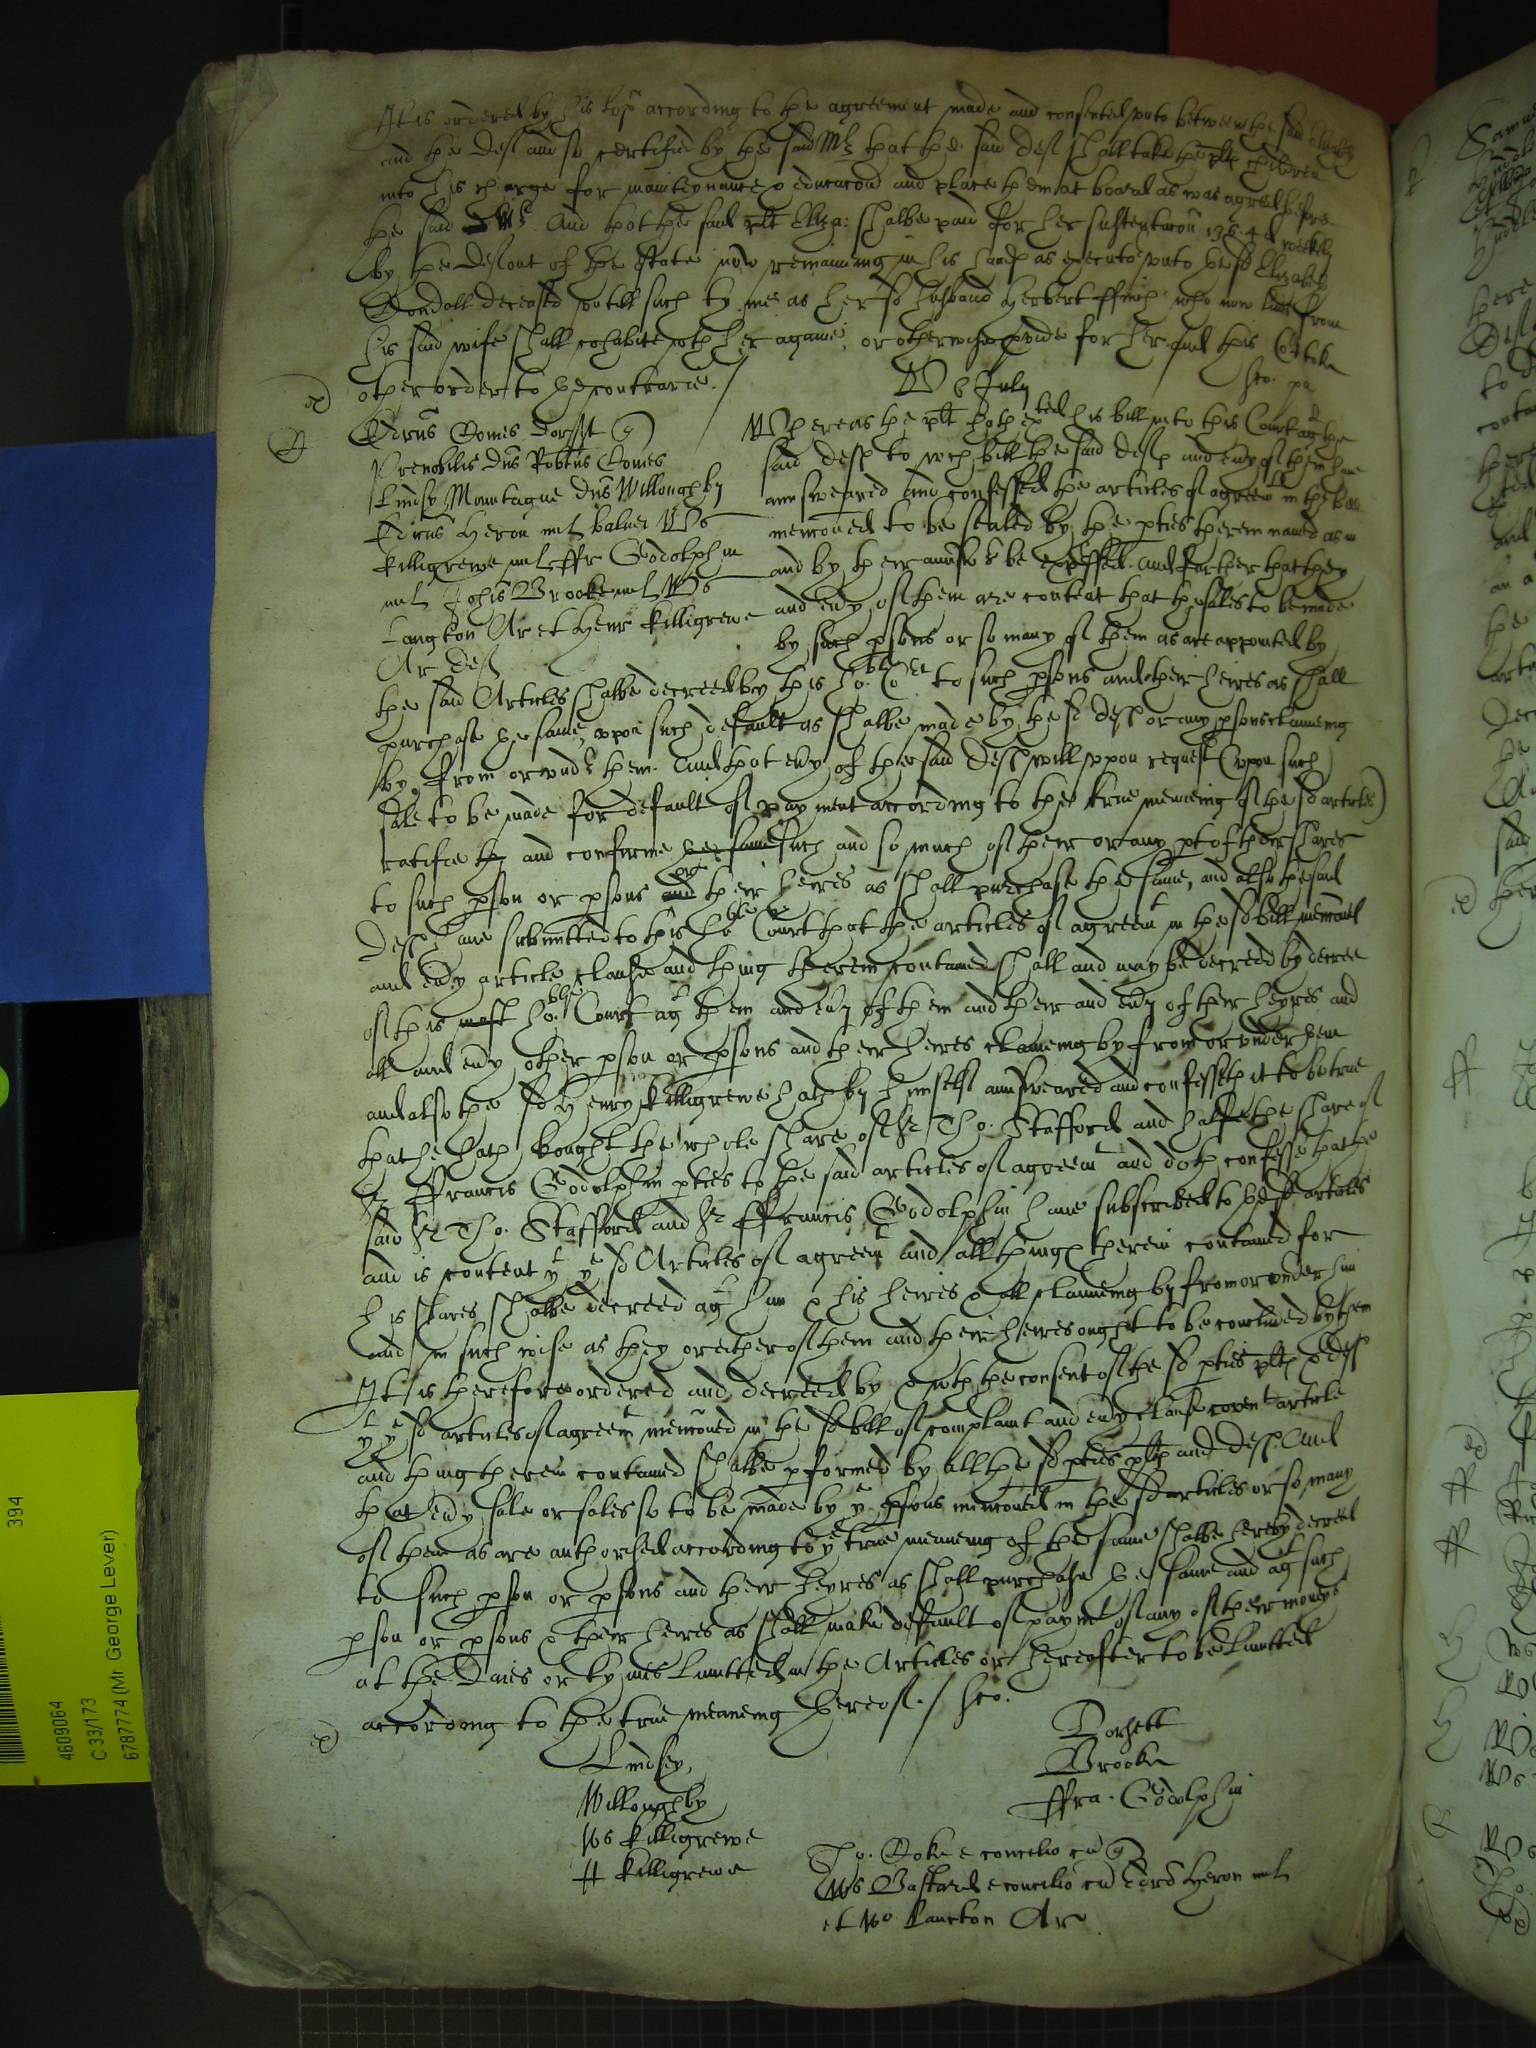 It is ordered by his Lop according to the agreement made and consented unto betweene the said
and the Deft and so certified by the said Mr that the said Deft shall take the plts children
into his charge for mainteynance & educacon and place them at board as was agreed before
the said Mr. And that the said plt Eliza: shalbe paid for her sustentacon 13s 4d weekely
by the Deft out of the estate now remaining in his hands as executor unto the sd Elizabeth
deceased untill such tyme as her sd husband Herbert ffinch who now lives from
his said wife shall cohabite with her againe, or otherwise pvide for her and this Co: take
other order to the contrarie. /
Ste. pa
W 6 July
Edrus Comes Dorsett q
Prenobilis Dns Robtus Comes
Lindsy Mountague Dns Willoughby
Edrus Heron mil balnei Ws
Killigrewe mil ffr Godolphin
mil Johis Brooke mil Ws
Langton Ar et Henr Killigrewe
Ar def
Whereas the plt hath exted his bill into this Court agt the
said defts to wch bill the said defts and evy of them have
annsweared and confessed the articles of agreemt in the bill
menconed to be sealed by the pties therein named as in
and by their annsrs be expressed. and further that they
and evy of them are content that the sales to be made
by such psons or so many of them as are appointed by
the said Articles shalbe decreed by this ho:ble Cort to such psons and their heires as shall
purchase the same, upon such default as shalbe made by the sd defts or any psons claimeing
by, from or undr them. And that evy of the said Defts will upon request (upon such
sale to be made for default of payment according to the true meaneing of the sd articles)
ratifie and confirme the same such and so much of their or any pt of their shares
to such pson or psons and or their heires as shall purchase the same, and also the said
Defts have submitted to this hoble Court that the articles of agreemt in the sd bill menconed
and evy article clause and thing therein contained shall and may be decreed by decree
of this most ho:ble Court agt them and evy of them and their and evy of their heyres and
all and evy other pson or psons and their heires claimeing by from or under them
and also the sd Henry Killigrewe hath by himself annsweared and confesseth it to be true
that he hath bought the whole share of Sr Tho. Stafford and halfe the share of
Sr ffrancis Godolphin pties to the said articles of agreemt and doth confesse that the
said Sr Tho. Stafford and Sr ffrancis Godolphin have subscribed to the sd articles
and is content yt ye sd Articles of agreemt and all things therein contained for
his shares shalbe decreed agt him & his heires & all claimeing by from or under him
and in such wise as they or either of them and their heires ought to be concluded by them
It is therefore ordered and decreed by & with the consent of the sd pties plts & defts
yt ye sd articles of agreemt menconed in the sd bill of complaint and evy clause covent article
and thing therein contained shalbe pformed by all the sd pties plts and defts. And
that evy sale or sales so to be made by ye psons menconed in the sd articles or so many
of them as are authorised according to ye true meaneing of the same shalbe hereby decreed
to such pson or psons and their heyres as shall purchase the same and agt such
pson or psons & their heires as shall make default of paymt of any of their moneys
at the daies or tymes limitted in the Articles or hereafter to be limitted
according to the true meaneing thereof. / Sto.
Lindsey,
Willoughby
Ws Killigrewe
H Killigrewe
Dorsett
Brooke
ffra. Godolphin
Tho. Coke e concilio cu q
Ws Bastard e concilio cu Edrd Heron mil
et Wo Lancton Ar
394
4609064
C 33/173
6787774 (Mr. George Lever)